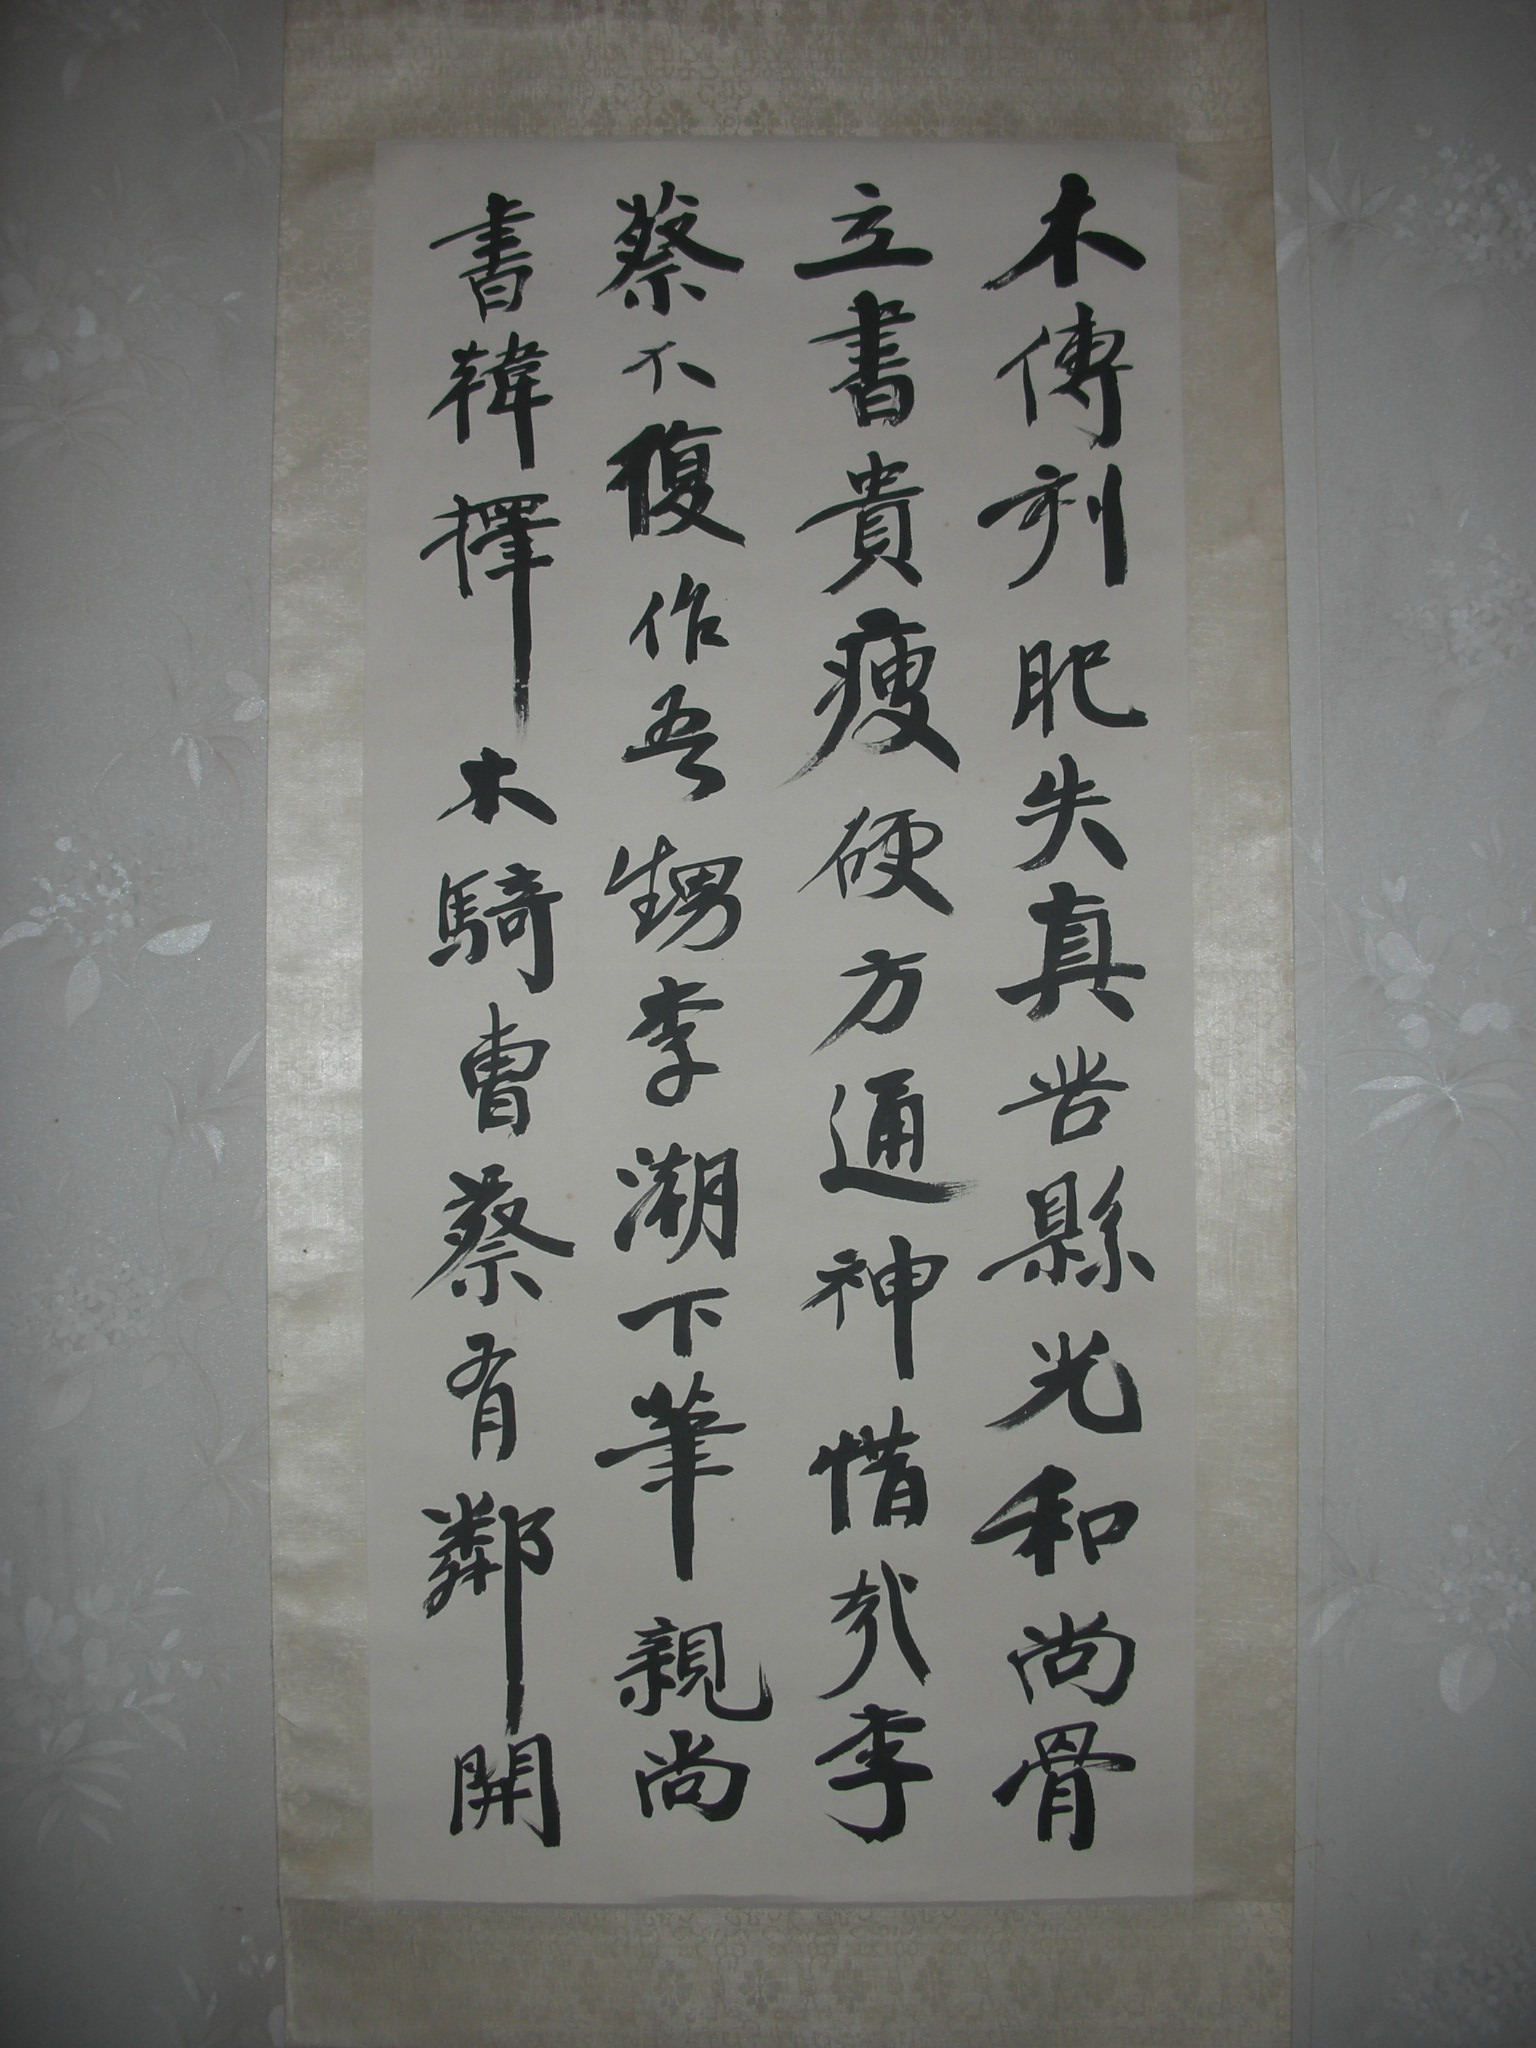 木傳刻肥失真苦縣光和尚骨
立書貴瘦硬方通神惜哉李
蔡不復作吾甥李潮下筆親尚
書韓擇木騎曹蔡有鄰開